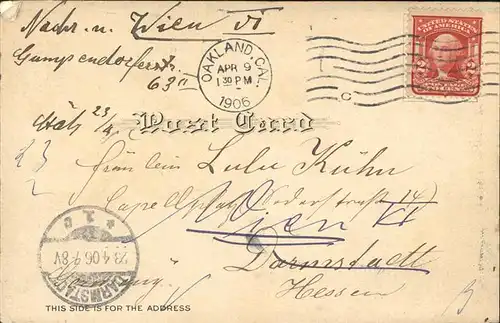 Nachr. n. Wien VI
Gumpendorferstr.
63 II
OAKLAND, CAL.
APR 9
1 30 PM
1906
UNITED STATES
OF AMERICA
23/4
Post Card
23
Fräulein Lulu Kühn
14)
Wien VI
Darmstadt
Hessen
DARMSTADT
23.4.06.7-8V.
THIS SIDE IS FOR THE ADDRESS